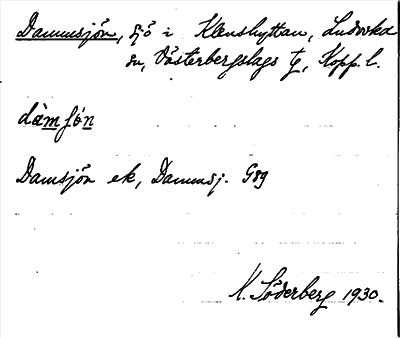 Dammsjön, sjö i Klenshyttan, Ludvika
sn, Västerbergslags tg, Kopp. l.
dàmsó̀n
Damsjön ek, Dammsj. G89
K. Söderberg 1930.